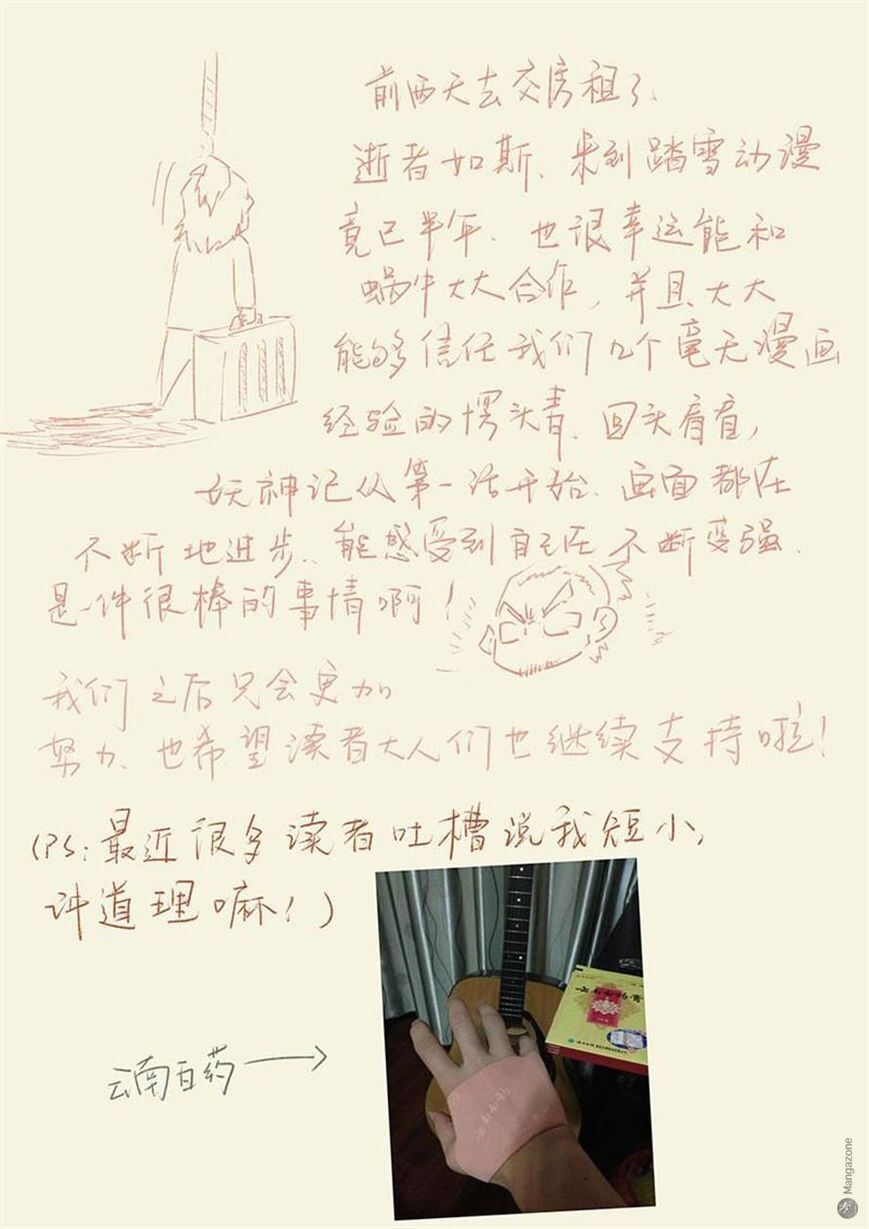 前两天去交房租了、
逝者如斯、来到踏雪动漫
竟已半年、也很幸运能和
蜗牛大大合作，并且大大
能够信任我们几个毫无漫画
经验的愣头青、回头看看，
妖神记从第一话开始、画面都在
不断地进步、能感受到自己在不断变强、
是一件很棒的事情啊！
我们之后只会更加
努力、也希望读者大人们也继续支持啦！
(PS:最近很多读者吐槽说我短小，
讲道理嘛！)
云南白药
Mangazone